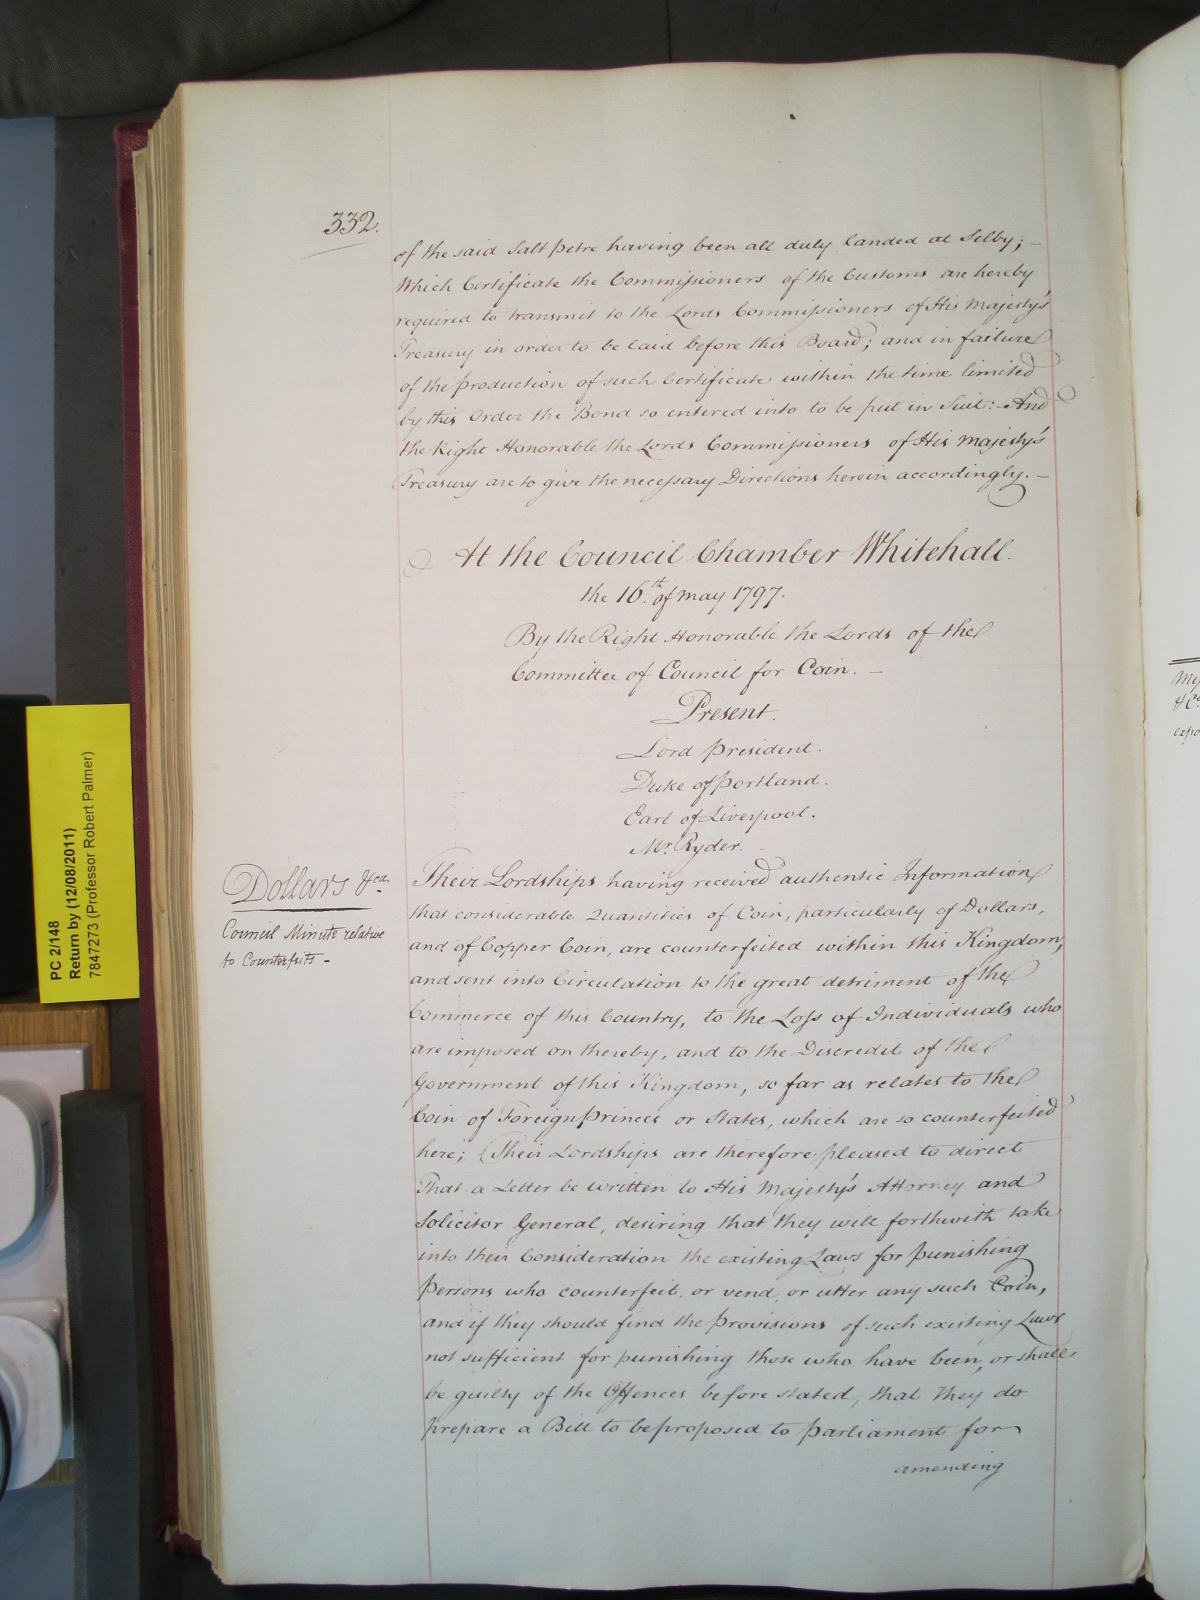 332.
of the said Salt petre having been all duly landed at Selby; –
Which Certificate the Commissioners of the Customs are hereby
required to transmit to the Lords Commissioners of His Majesty's
Treasury in order to be laid before this Board; and in failure
of the production of such Certificate within the time limited
by this Order the Bond so entered into to be put in Suit: And
the Right Honorable the Lords Commissioners of His Majesty's
Treasury are to give the necessary Directions herein accordingly. –
At the Council Chamber Whitehall.
the 16th of May 1797.
By the Right Honorable the Lords of the
Committee of Council for Coin. –
Present.
Lord President.
Duke of Portland.
Earl of Liverpool.
Mr. Ryder.
Dollars &ca
Council Minute relative
to Counterfeits –
Their Lordships having received authentic Information
that considerable Quantities of Coin, particularly of Dollars,
and of Copper Coin, are counterfeited within this Kingdom,
and sent into Circulation to the great detriment of the
Commerce of this Country, to the Loss of Individuals who
are imposed on thereby, and to the Discredit of the
Government of this Kingdom, so far as relates to the
Coin of Foreign Princes or States, which are so counterfeited
here; Their Lordships are therefore pleased to direct
That a Letter be written to His Majesty's Attorney and
Solicitor General, desiring that they will forthwith take
into their Consideration the existing Laws for punishing
Persons who counterfeit, or vend, or utter any such Coin,
and if they should find the provisions of such existing Laws
not sufficient for punishing those who have been, or shall
be guilty of the Offences before stated, that they do
prepare a Bill to be proposed to Parliament for
amending
PC 2/148
Return by (12/08/2011)
7847273 (Professor Robert Palmer)